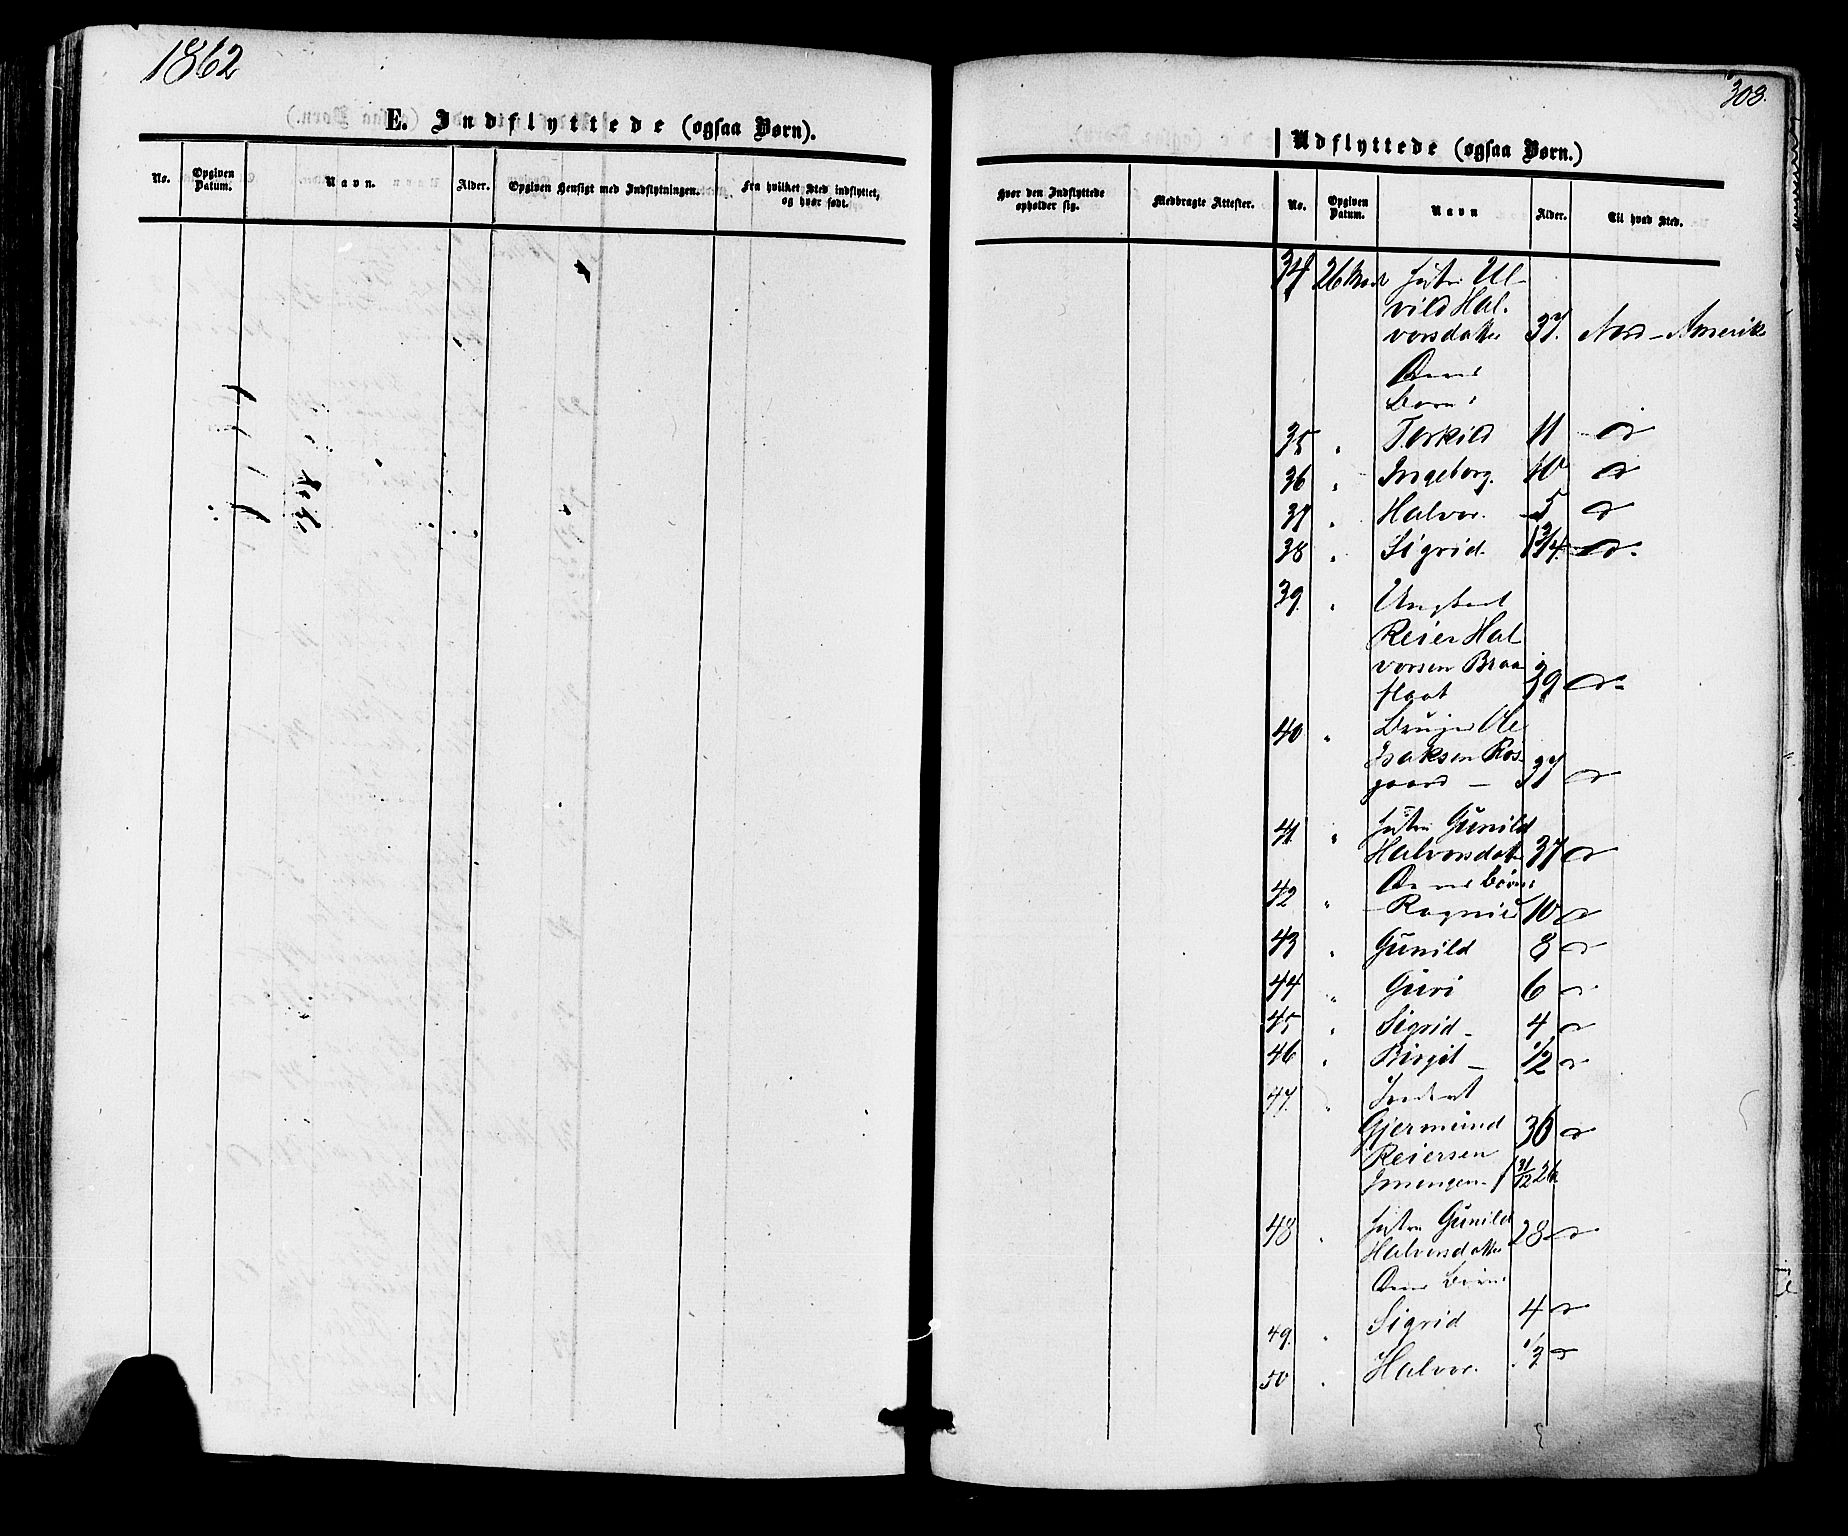 1862
308.
E. Indflyttede (ogsaa Børn).
Udflyttede (ogsaa Børn.)
No.
Opgiven Datum.
Navn.
Alder.
Opgiven Hensigt med Indflytningen.
Fra hvilket Sted indflyttet, og hvor født.
Hvor den Indflyttede opholder sig.
Medbragte Attester.
No.
Opgiven Datum.
Navn
Alder.
Til hvad Sted.
34 26 Hustru Ul-
vild Hal-
vorsdatter 37. Nord-Amerik
Deres
Børn:
35 " Torkild 11 do
36 " Ingeborg. 10 do
37 " Halvor. 5 do
38 " Sigrid. 1 3/4 do.
39. " Ungkarl
Reier Hal
vorsen Braa
flaat 39 do.
40 " Ole
Isaksen Ros-
gaard — 37 do
41 " Hustru Gunild
Halvorsdatter 37 do
Deres Børn:
42 " Ragnild 10 do
43 " Gunild 8 do
44 " Guri 6 do
45 " Sigrid 4 do
46 " Birgit — 1/2 do
47. "
Gjermund 36 do
Reiersen
31/12 26
48 " Hustru Gunild 28 do
Halvorsdatter
Deres Børn
49. " Sigrid 4 do
50 " Halvor. 1/2 do